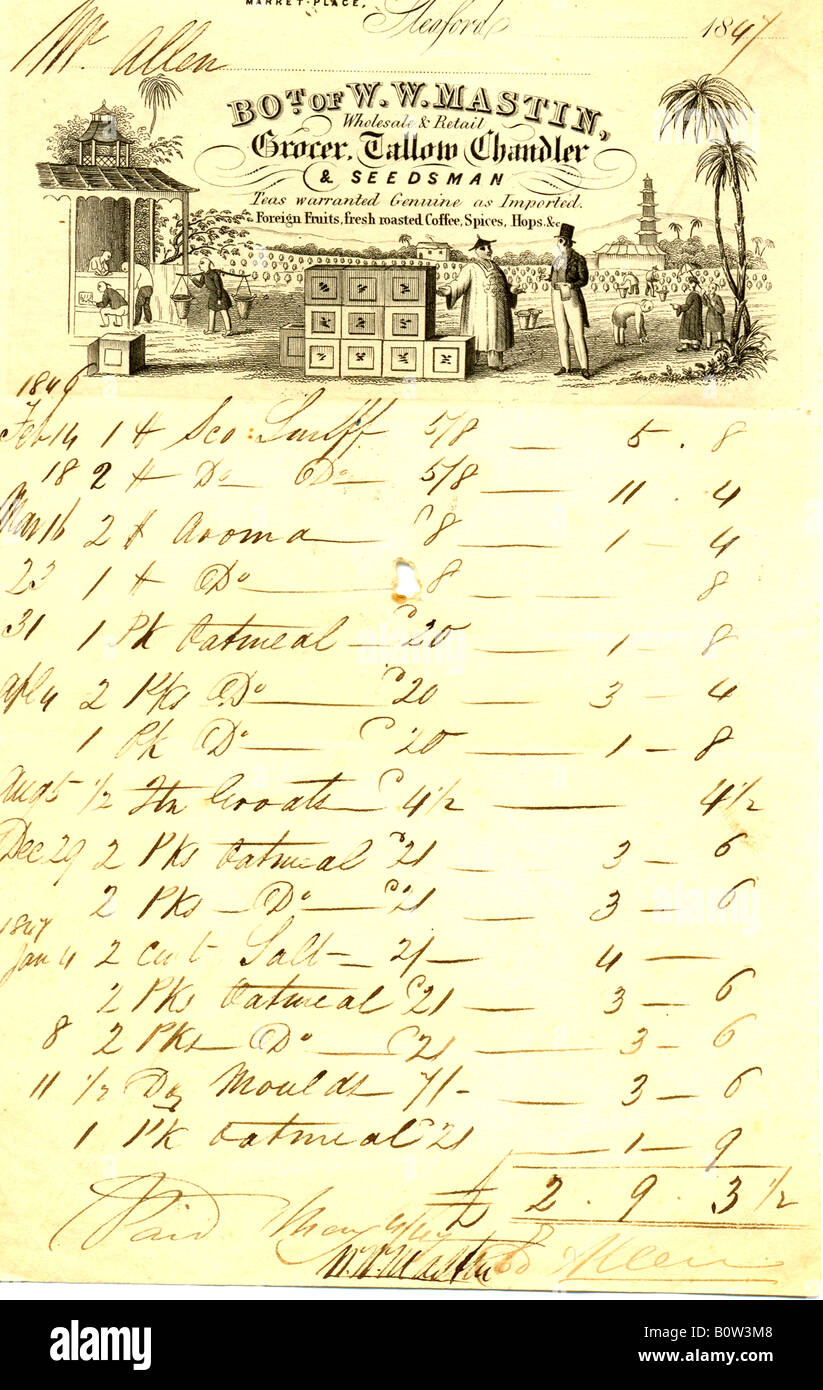 MARKET-PLACE,
Sleaford 1847
Mr Allen
BOT. OF W. W. MASTIN,
Wholesale & Retail
Grocer, Tallow Chandler
& SEEDSMAN
Teas warranted Genuine as Imported.
Foreign Fruits, fresh roasted Coffee, Spices, Hops, &c
1846
Feb 14 1 Sco: Snuff 5/8 — 5 . 8
18 2 Do Do 5/8 — 11 . 4
Mar 16 2 Aroma 8 — 1 — 4
23 1 Do — 8 — 8
31 1 Pk Oatmeal — 20 — 1 — 8
Apl 4 2 Pks Do — 20 — 3 — 4
1 Pk Do — 20 — 1 — 8
Aug 5 1/2 Groats 4 1/2 — 4 1/2
Dec 29 2 Pks Oatmeal 21 — 3 — 6
2 Pks — Do — 21 — 3 — 6
1847
Jan 4 2 Cwt Salt — 2/- 4 —
2 Pks Oatmeal 21 — 3 — 6
8 2 Pks — Do — 21 — 3 — 6
11 1/2 Doz Moulds 7/- — 3 — 6
1 Pk Oatmeal 21 — 1 — 9
£ 2 . 9 . 3 1/2
Paid
W. W. Mastin Allen
alamy
alamy
alamy
Image ID: B0W3M8
www.alamy.com